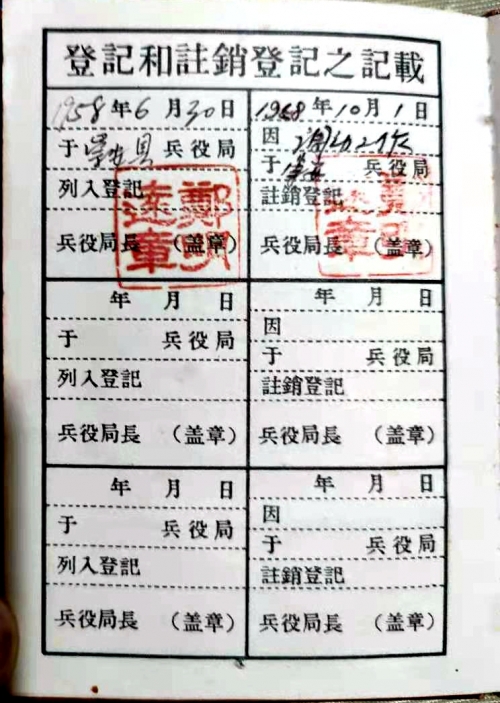 登記和註銷登記之記載
1958年6月30日
于 兵役局
列入登記
兵役局長 (盖章)
年10月1日
因 工作
于 兵役局
註銷登記
兵役局長 (盖章)
年 月 日
于 兵役局
列入登記
兵役局長 (盖章)
年 月 日
因
于 兵役局
註銷登記
兵役局長 (盖章)
年 月 日
于 兵役局
列入登記
兵役局長 (盖章)
年 月 日
因
于 兵役局
註銷登記
兵役局長 (盖章)